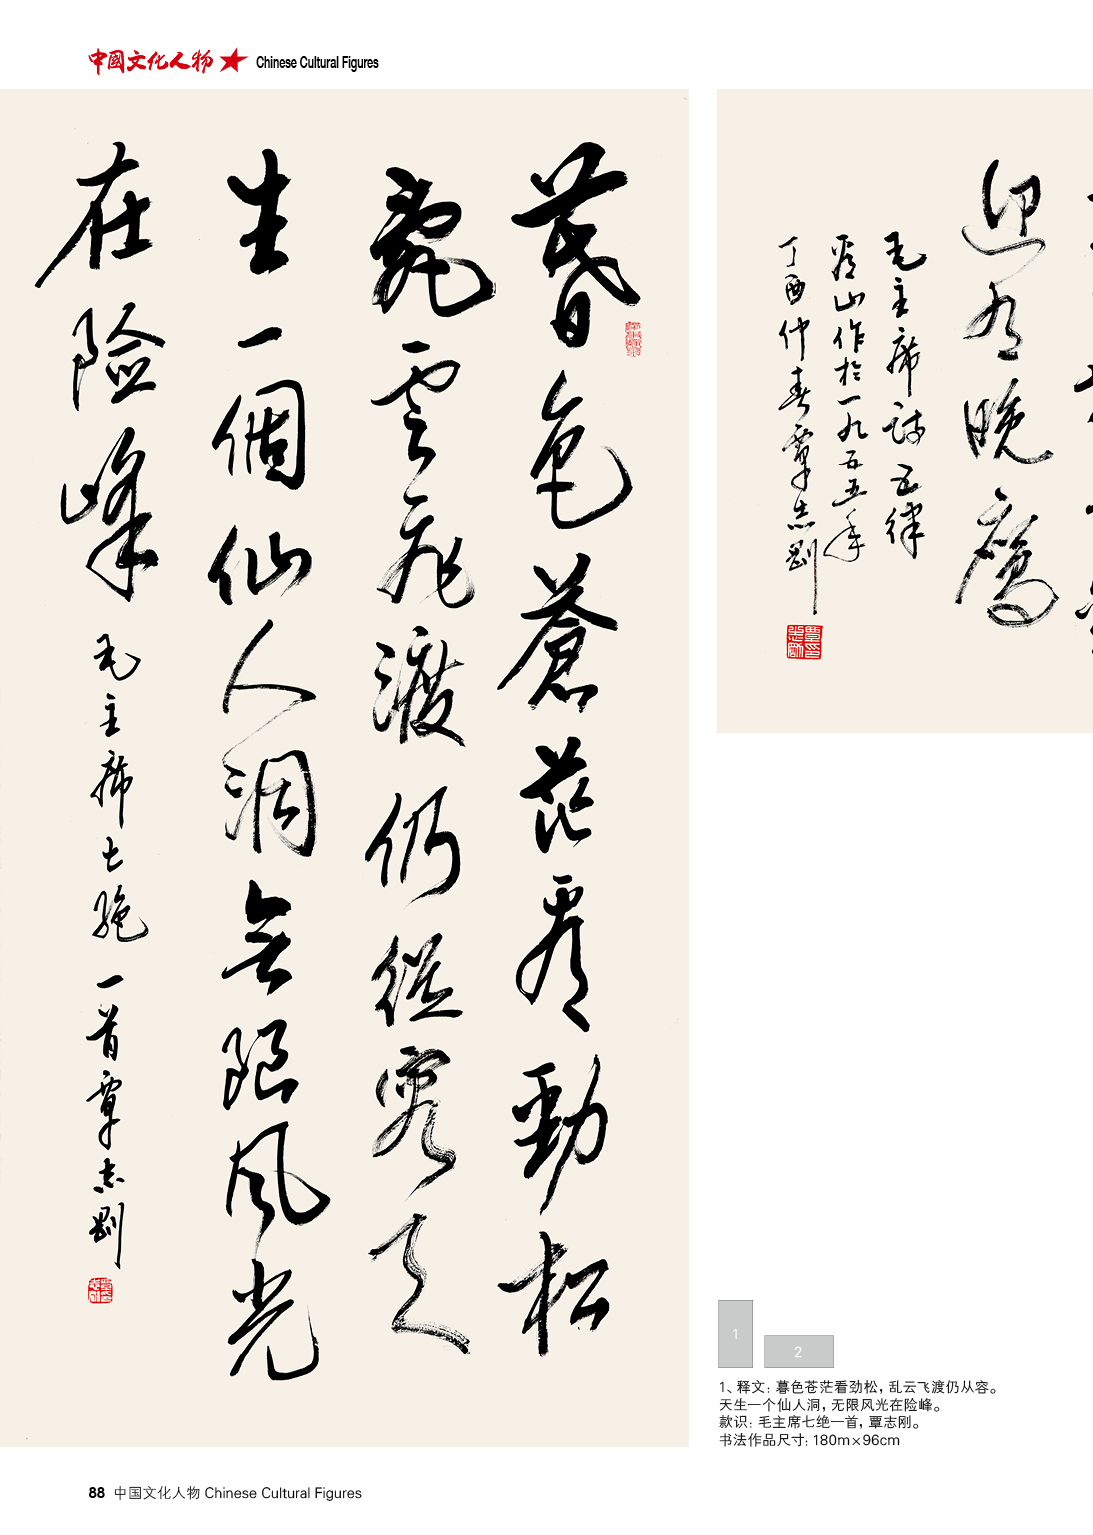 中國文化人物 Chinese Cultural Figures
暮色蒼茫看勁松
亂雲飛渡仍從容天
生一個仙人洞無限風光
在險峰 毛主席七絕一首覃志剛
迎有晚鷹
毛主席詩五律
看山作於一九五五年
丁酉仲春覃志剛
1
2
1、释文: 暮色苍茫看劲松, 乱云飞渡仍从容。
天生一个仙人洞, 无限风光在险峰。
款识: 毛主席七绝一首, 覃志刚。
书法作品尺寸: 180m×96cm
88 中国文化人物 Chinese Cultural Figures